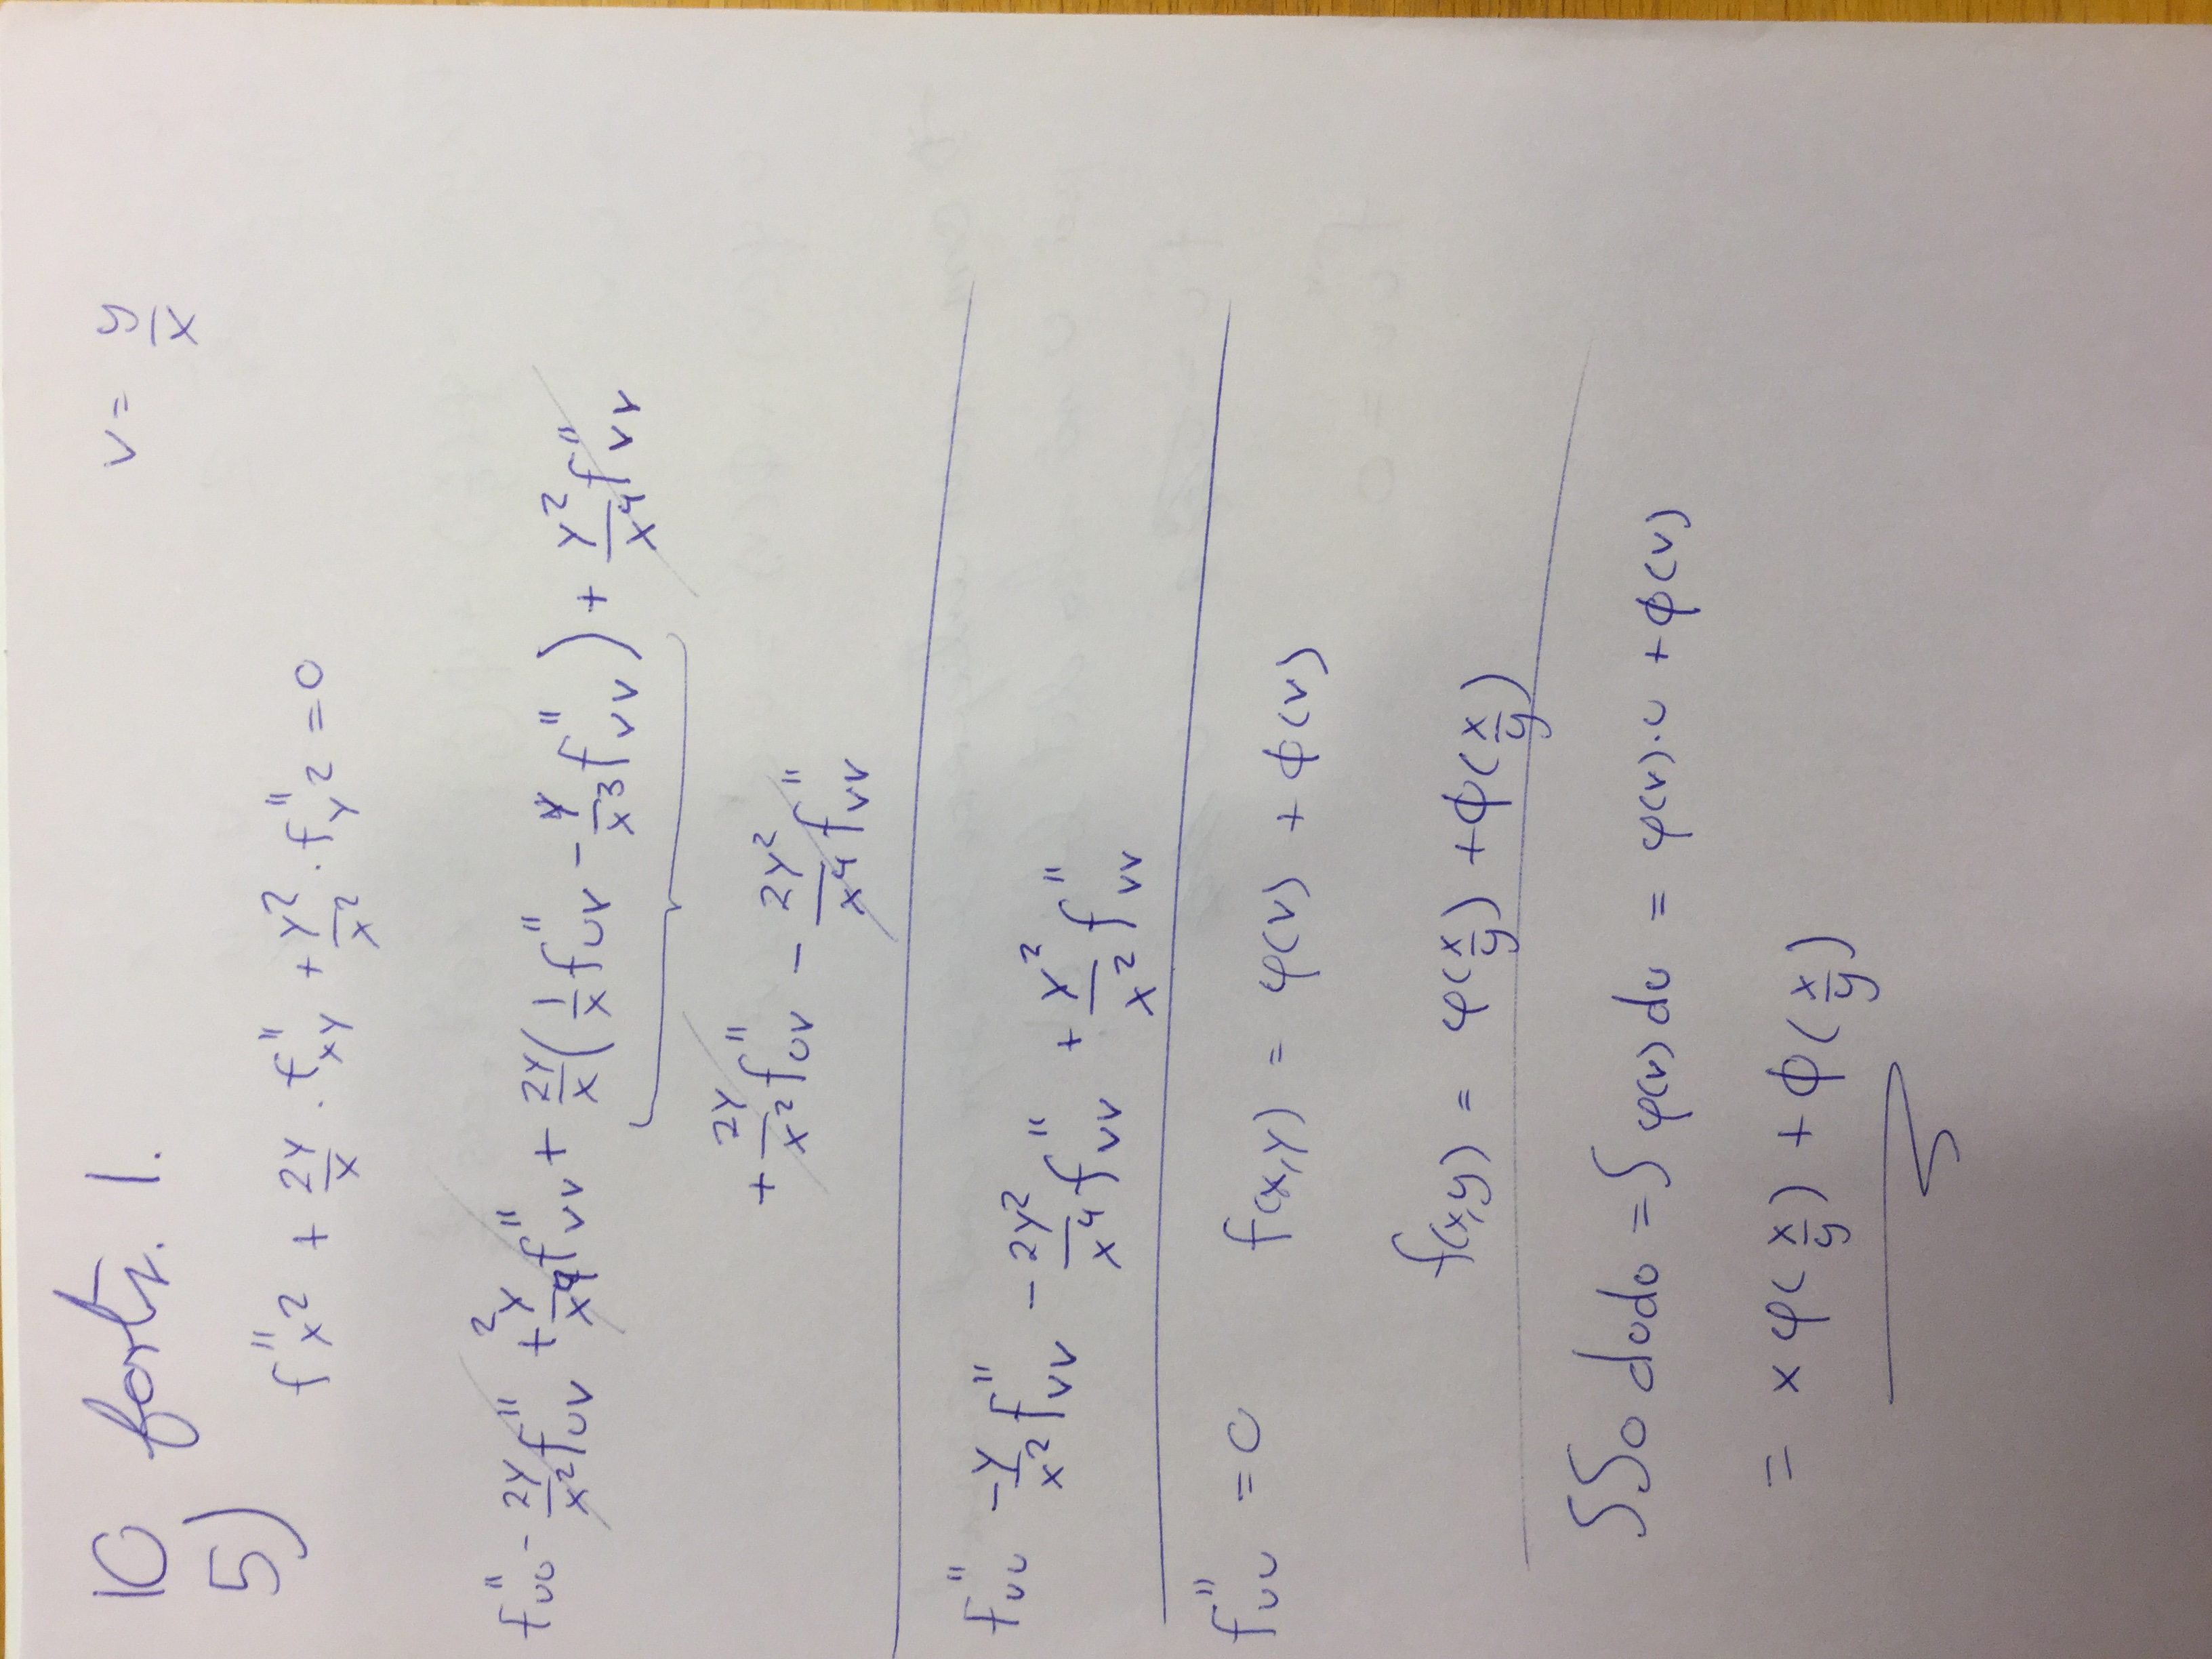 10 forts. 1.
v = y/x
5)
f''x² + 2y/x · f''xy + y²/x² · f''y² = 0
f''uu - 2y/x² f''uv + y²/x⁴ f''vv + 2y/x (1/x f''uv - y/x³ f''vv) + y²/x⁴ f''vv
+ 2y/x² f''uv - 2y²/x⁴ f''vv
f''uu - y/x² f''vv - 2y²/x⁴ f''vv + y²/x² f''vv
f''uu = 0 f(x,y) = φ(v) + ϕ(v)
f(x,y) = φ(x/y) + ϕ(x/y)
∫∫0 dudu = ∫ φ(v) du = φ(v)·u + ϕ(v)
= x φ(x/y) + ϕ(x/y)